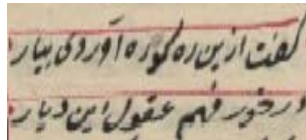 گفت ازین ره کو ره آوردی بیار
در خور فهم عقول این دیار